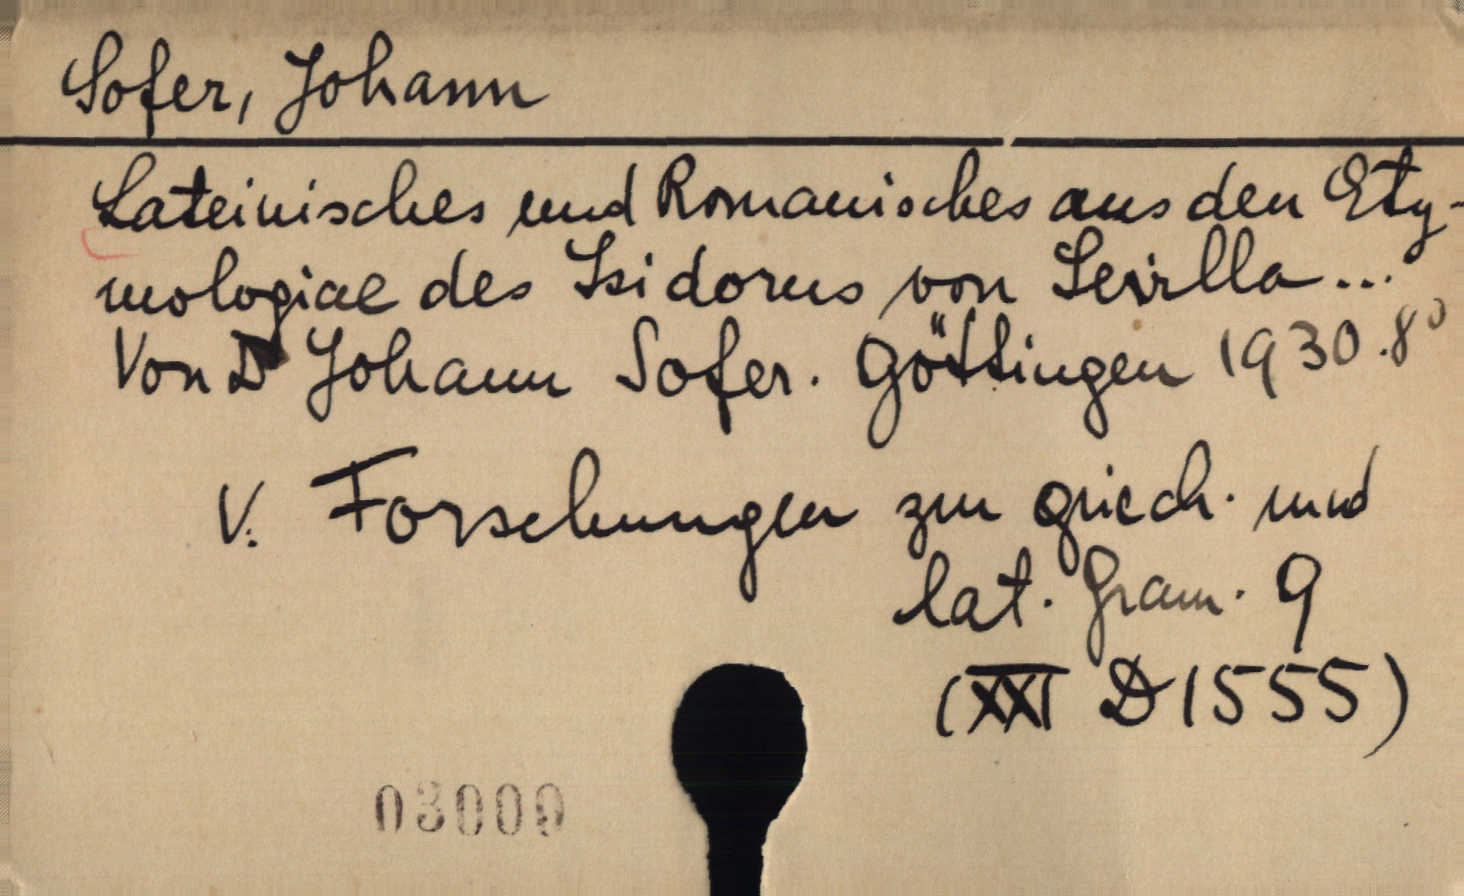 Sofer, Johann
Lateinisches und Romanisches aus den Ety-
mologiae des Isidorus von Sevilla ...
Von Dr Johann Sofer. Göttingen 1930. 8°
V. Forschungen zur griech. und
lat. Gram. 9
(XXI D 1555)
03000